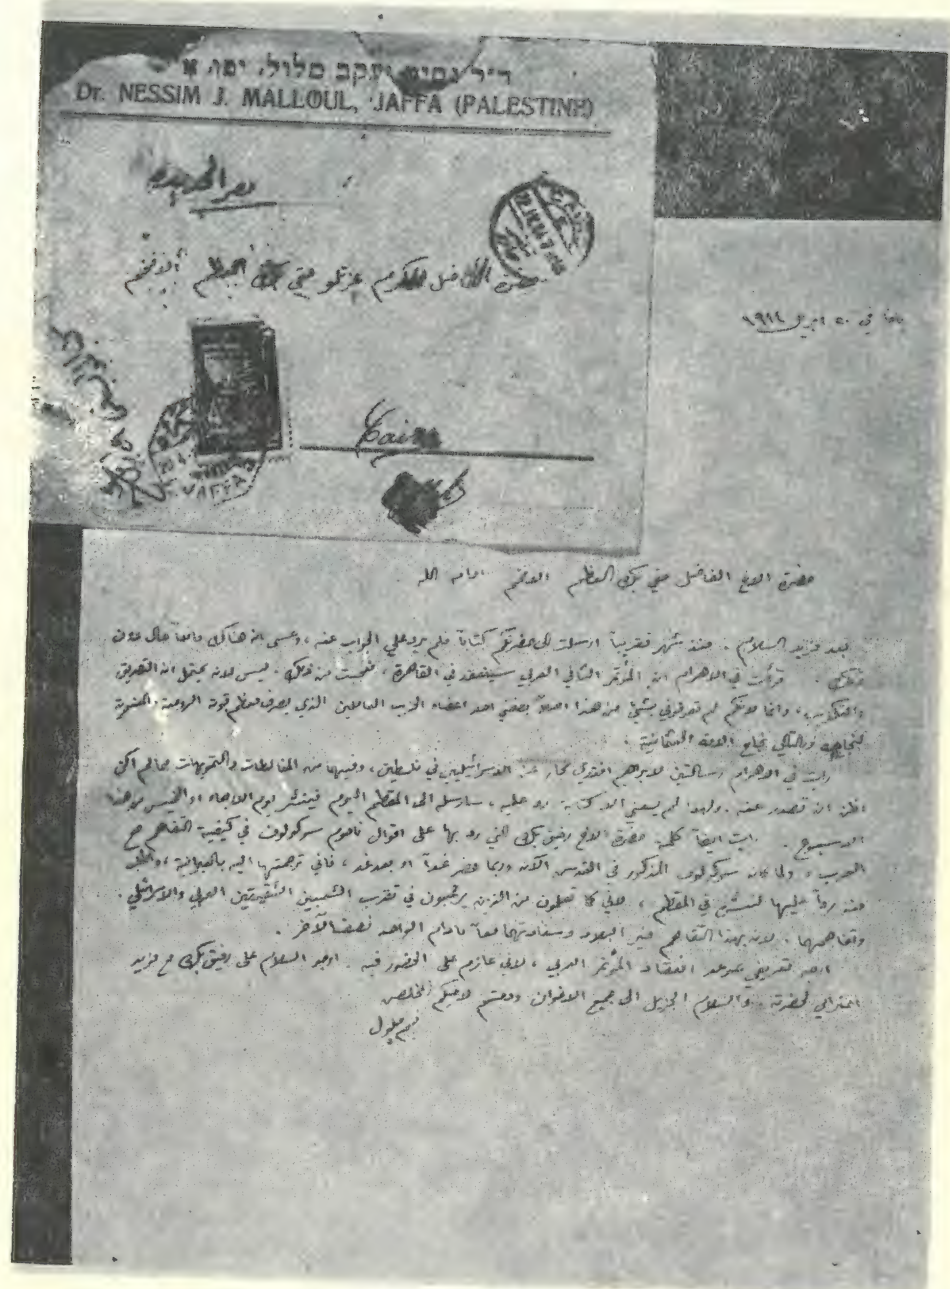 ד״ר נסים יעקב מלול, יפו, א״י
Dr. NESSIM J. MALLOUL, JAFFA (PALESTINE)
مصر المحروسه
حضرة الفاضل المكرم عزتلو حقي بك العظم الافخم
Cairo
JAFFA
يافا في ٢٠ ابريل ١٩١٤
حضرة الاخ الفاضل حقي بك العظم الافخم ادامه الله
بعد مزيد السلام . منذ شهر تقريباً ارسلت الى حضرتكم كتاباً فلم يرد علي الجواب عنه ، وعسى ان هناك مانعاً حال دون
ذلك . قرأت في الاهرام ان المؤتمر الثاني العربي سينعقد في القاهرة ، فعجبت من ذلك . ليس لانه يحتمل التصديق
والتكذيب ، وانما لانكم لم تعرفوني بشيء من هذا اصلاً بصفتي احد اعضاء الحزب العاملين الذي يصرف معظم قوته
لنجاحه وبالتالي نجاح الامة العثمانية .
رايت في الاهرام رسالتين لابراهيم افندي نجار عن الاسرائيليين في فلسطين ، وفيهما من المغالطات والتمويهات مالم اكن
اظن ان تصدر عنه . ولهذا لم يسعني الا كتابة رد عليه ، سارسله الى المقطم اليوم فينشر يوم الاربعاء او الخميس من هذا
الاسبوع . رايت ايضاً كلمة حضرة الاخ رفيق بك التي رد بها على اقوال ناحوم سوكولوف في كيفية التفاهم مع
العرب ، ولما كان سوكولوف المذكور في القدس الآن وربما حضر غداً او بعد غد ، فاني ترجمتها اليه بالعبرانية ، واطلب
منه رداً عليها لننشره في المقطم ، لاني كما تعلمون من الذين يرغبون في تقرب الشعبين الشقيقين العربي والاسرائيلي .
وتفاهمهما . لانه بهذا التفاهم خير البلاد وسعادتهما معاً مادام الواحد نصف الآخر .
ارجو تعريفي بموعد انعقاد المؤتمر العربي ، لاني عازم على الحضور فيه . ارجو السلام على رفيق بك مع مزيد
احترامي لحضرته . والسلام الجزيل الى جميع الاخوان ودمتم لاخيكم المخلص
نسيم ملول